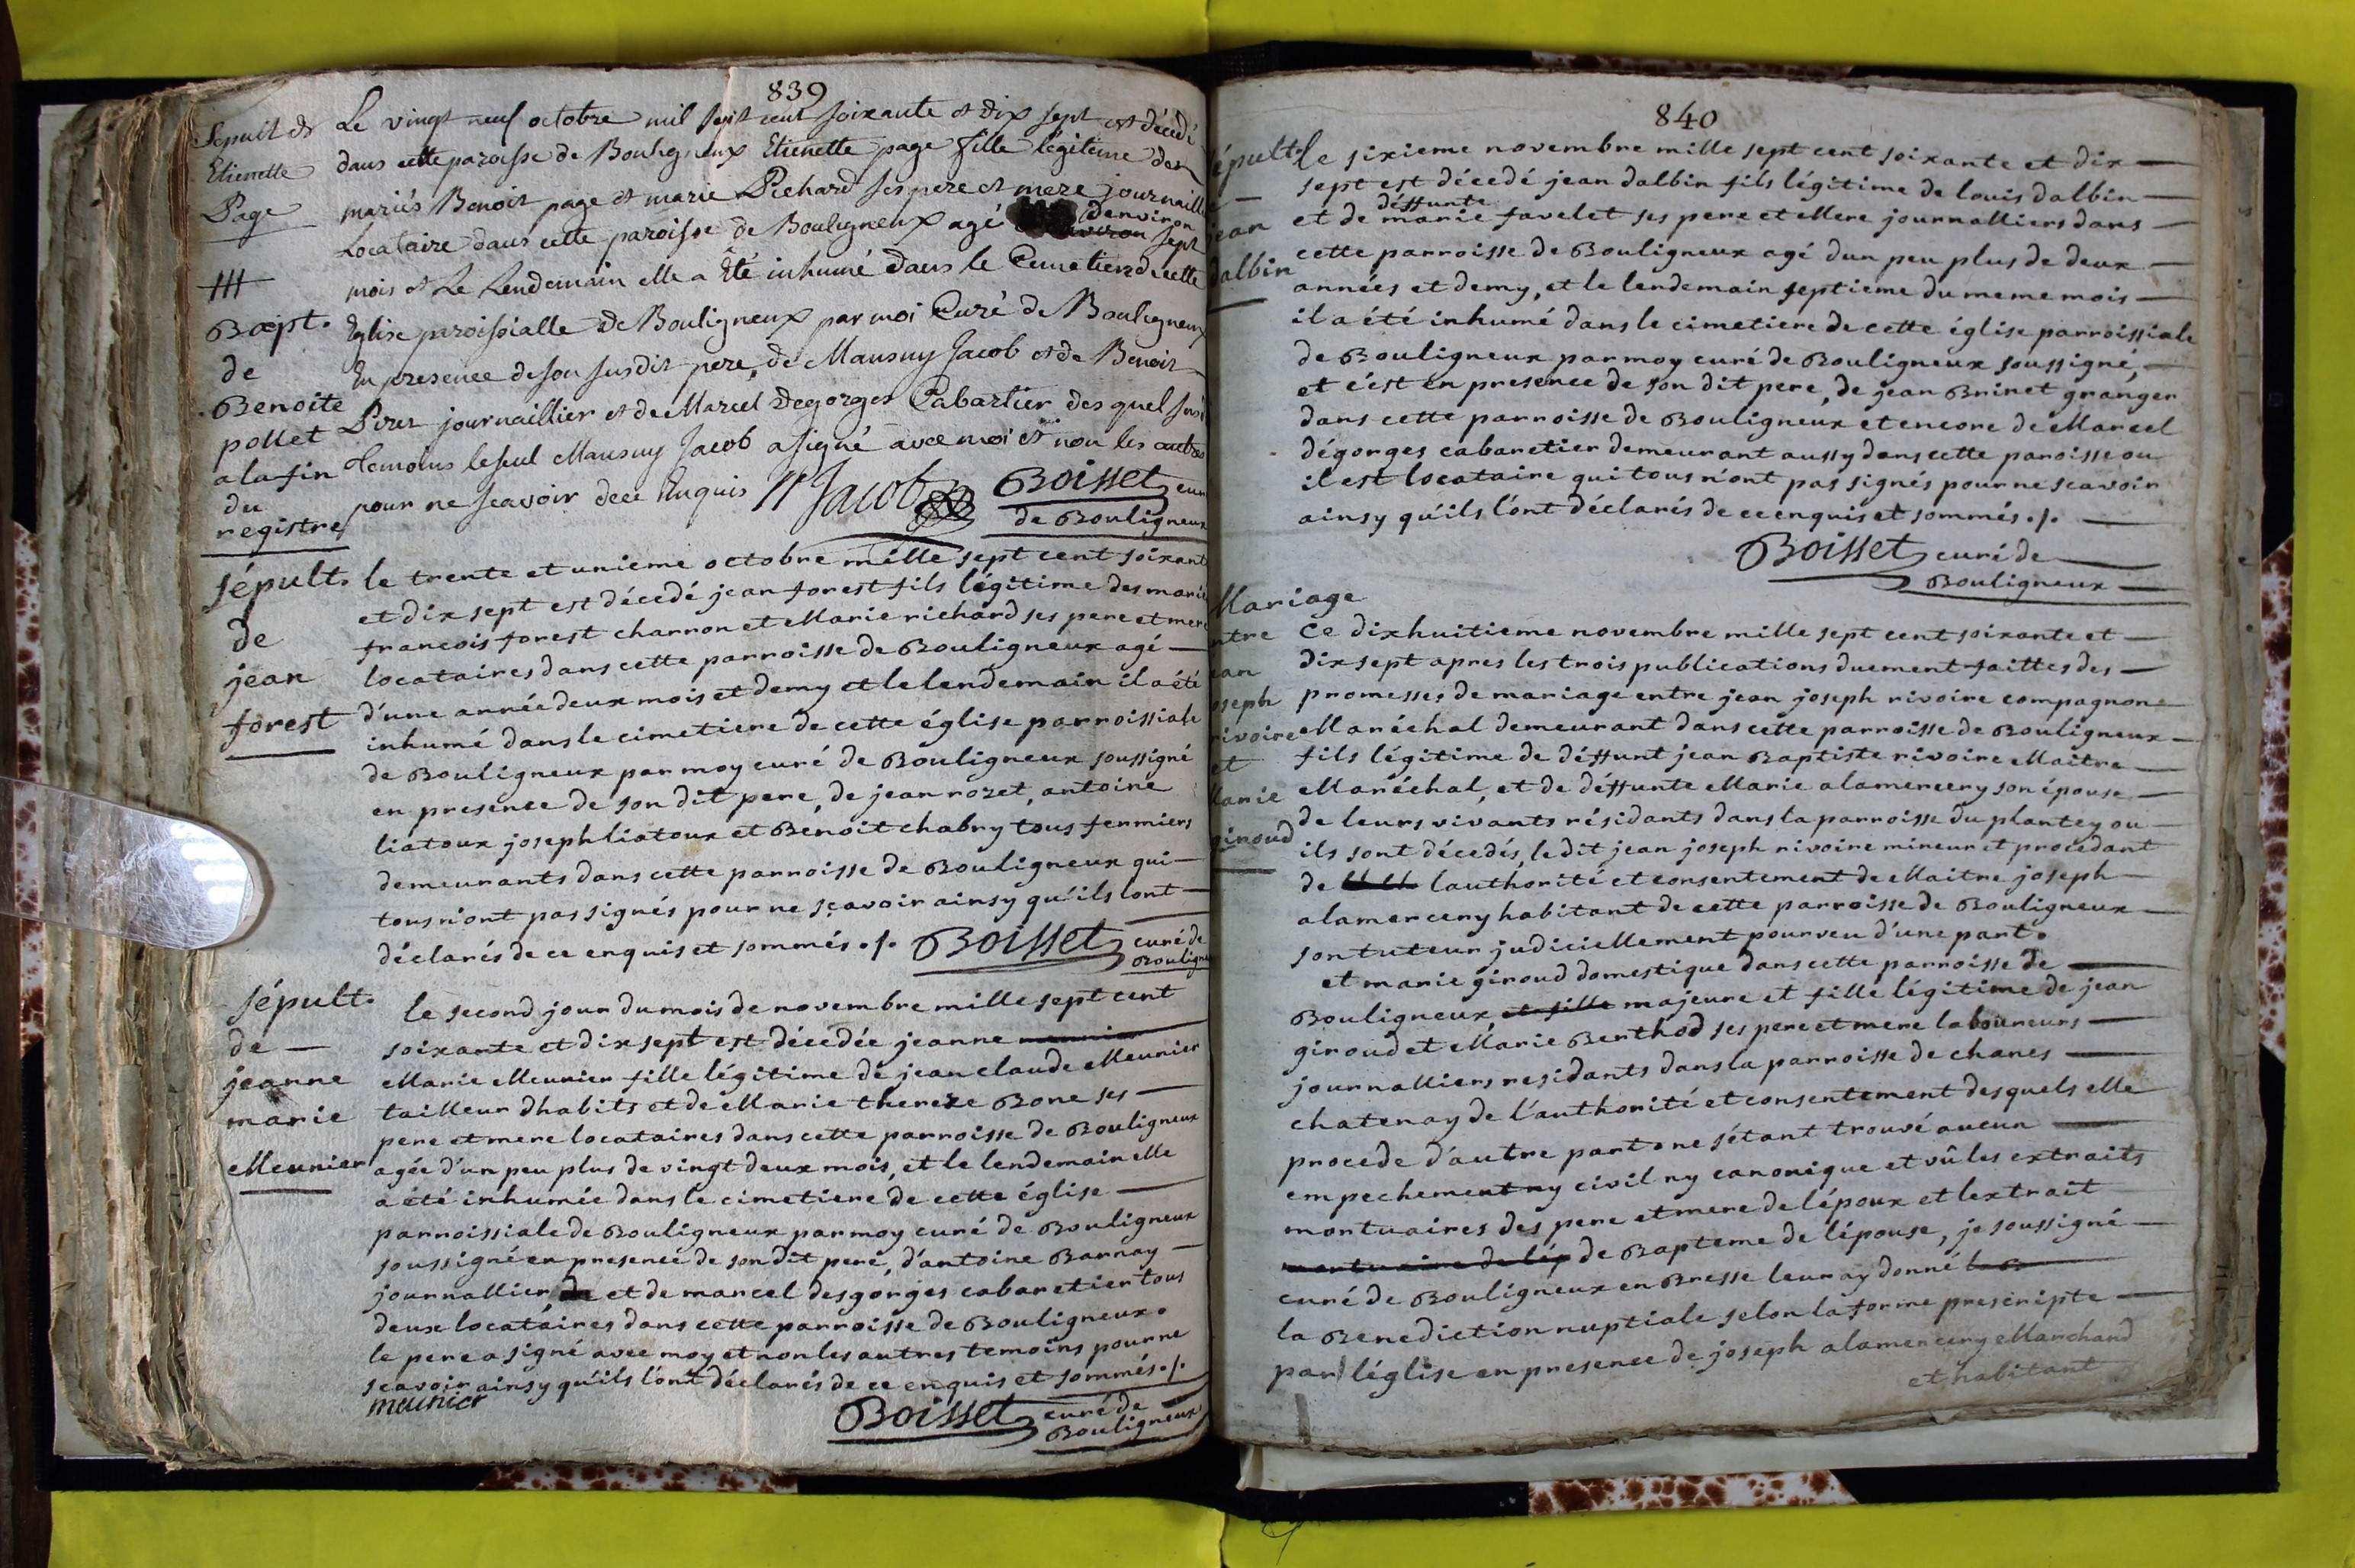 839
Sepult de
Etienette
Page
Le vingt neuf octobre mil sept cent soixante et dix sept est décédé
dans cette paroisse de Bouligneux Etienette page fille légitime des
mariés Benoit page et marie Pichard ses pere et mere journaillie
Locataire dans cette paroisse de Bouligneux agé denviron sept
mois et Le Lendemain elle a Eté inhumé dans le Cimetiere de cette
Eglise paroissialle de Bouligneux par moi Curé de Bouligneux
En presence de son susdit pere, de Mansuy Jacob et de Benoit
journaillier et de Marcel Degorges Cabartier des quel susd
temoins le seul Mansuy Jacob a signé avec moi et non les autres
pour ne scavoir de ce Enquis M Jacob Boisset curé
de Bouligneux
Bapt.
de
Benoite
pollet
a la fin
du
registre
Sépult.
de
jean
forest
le trente et unieme octobre mille sept cent soixante
et dix sept est décedé jean forest fils légitime des mariés
francois forest charron et Marie richard ses pere et mere
locataires dans cette parroisse de Bouligneux agé
d'une année deux mois et demy et le lendemain il a été
inhumé dans le cimetiere de cette église parroissiale
de Bouligneux par moy curé de Bouligneux soussigné
en presence de son dit pere, de jean rozet, antoine
liatoux joseph liatoux et Benoit chabry tous fermiers
demeurants dans cette parroisse de Bouligneux qui
tous n'ont pas signés pour ne sçavoir ainsy qu'ils lont
déclarés de ce enquis et sommés ./. Boisset curé de
Bouligneux
Sépult.
de
jeanne
marie
Meunier
le second jour du mois de novembre mille sept cent
soixante et dix sept est décedée jeanne
Marie Meunier fille légitime de jean claude Meunier
tailleur dhabits et de Marie thereze Bone ses
pere et mere locataires dans cette parroisse de Bouligneux
agée d'un peu plus de vingt deux mois, et le lendemain elle
a été inhumée dans le cimetiere de cette église
parroissiale de Bouligneux par moy curé de Bouligneux
soussigné en presence de son dit pere, d'antoine Barnay
journallier, et de marcel desgorges cabaretier tous
deux locataires dans cette parroisse de Bouligneux.
le pere a signé avec moy et non les autres temoins pour ne
scavoir ainsy qu'ils l'ont déclarés de ce enquis et sommés ./.
meunier
Boisset curé de
Bouligneux
840
sépult
jean
dalbin
le sixieme novembre mille sept cent soixante et dix
sept est décedé jean dalbin fils légitime de louis dalbin
et de déffunte marie favelet ses pere et Mere journalliers dans
cette parroisse de Bouligneux agé dun peu plus de deux
années et demy, et le lendemain septieme du meme mois
il a été inhumé dans le cimetiere de cette église parroissiale
de Bouligneux par moy curé de Bouligneux soussigné,
et c'est en presence de son dit pere, de jean Brinet granger
dans cette parroisse de Bouligneux et encore de Marcel
dégorges cabaretier demeurant aussy dans cette paroisse ou
il est locataire qui tous n'ont pas signés pour ne scavoir
ainsy qu'ils l'ont déclarés de ce enquis et sommés ./.
Boisset curé de
Bouligneux
Mariage
entre
jean
joseph
rivoire
et
Marie
giroud
Ce dixhuitieme novembre mille sept cent soixante et
dix sept apres les trois publications duement faittes des
promesses de mariage entre jean joseph rivoire compagnon
Maréchal demeurant dans cette parroisse de Bouligneux
fils légitime de déffunt jean Baptiste rivoire Maitre
Maréchal, et de déffunte Marie alamercery son épouse
de leurs vivants résidants dans la parroisse du plantey ou
ils sont décedés, le dit jean joseph rivoire mineur et procedant
de lauthorité et consentement de Maitre joseph
alamercery habitant de cette parroisse de Bouligneux
son tuteur judiciellement pourveu d'une part.
et marie giroud domestique dans cette parroisse de
Bouligneux, et fille majeure et fille légitime de jean
giroud et Marie Berthod ses pere et mere laboureurs
journalliers residants dans la parroisse de chanes
chatenay de l'authorité et consentement desquels elle
procede d'autre part ne s'étant trouvé aucun
empechement ny civil ny canonique et vûles extraits
mortuaires des pere et mere de lépoux et lextrait
mortuaire de lép de Bapteme de lépouse, je soussigné
curé de Bouligneux en Bresse leur ay donné
la Benediction nuptiale selon la forme prescripte
par léglise en presence de joseph alamercery Marchand
et habitant